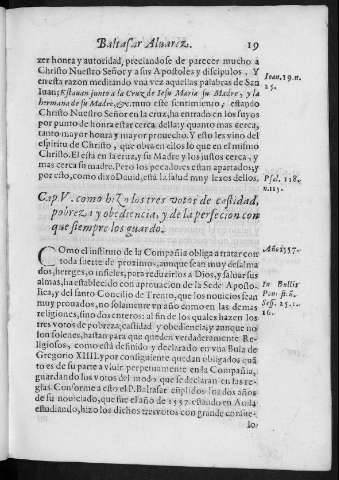 Baltasar Aluarez. 19
zer honra y autoridad, preciandose de parecer mucho a
Christo Nuestro Señor y a sus Apostoles y discipulos. Y
en esta razon meditando vna vez aquellas palabras de San
Iuan; Estauan junto a la Cruz de Iesu Maria su Madre, y la
hermana de su Madre, &c. tuuo este sentimiento, estando
Christo Nuestro Señor en la cruz, ha entrado en los suyos
por punto de honra estar cerca della: y quanto mas cerca,
tanto mayor honra y mayor prouecho. Y esto lex vino del
espiritu de Christo, que obra en ellos lo que en el mismo
Christo. El està en la cruz, y su Madre y los justos cerca, y
mas cerca su Madre. Pero los pecadores estan apartados, y
por esto, como dixo Dauid, està la salud muy lexos dellos.
Ioan. 19. n.
25.
Psal. 118.
n. 155.
Cap. V. como hizo los tres votos de castidad,
pobreza y obediencia, y de la perfecion con
que siempre los guardo.
COmo el instituto de la Compañia obliga a tratar con
toda suerte de proximos, aunque sean muy desalma
dos, hereges, o infieles, para reduzirlos a Dios, y saluar sus
almas, ha establecido con aprouacion de la Sede Aposto-
lica, y del santo Concilio de Trento, que los nouicios sean
muy prouados, no solamente vn año como en las demas
religiones, sino dos enteros: al fin de los quales hazen los
tres votos de pobreza, castidad y obediencia; y aunque no
son solenes, bastan para que queden verdaderamente Re-
ligiosos, como està definido y declarado en vna Bula de
Gregorio XIIII. y por consiguiente quedan obligados quã
to es de su parte a viuir perpetuamente en la Compañia,
guardando los votos del modo que se declaran en las re-
glas. Conforme a esto el P. Baltasar cũplidos los dos años
de su nouiciado, que fue el año de 1557. estando en Auila
estudiando, hizo los dichos tres votos con grande consue-
lo,
Año 1557.
In Bullis
Pon:
Ses. 25. c.
16.